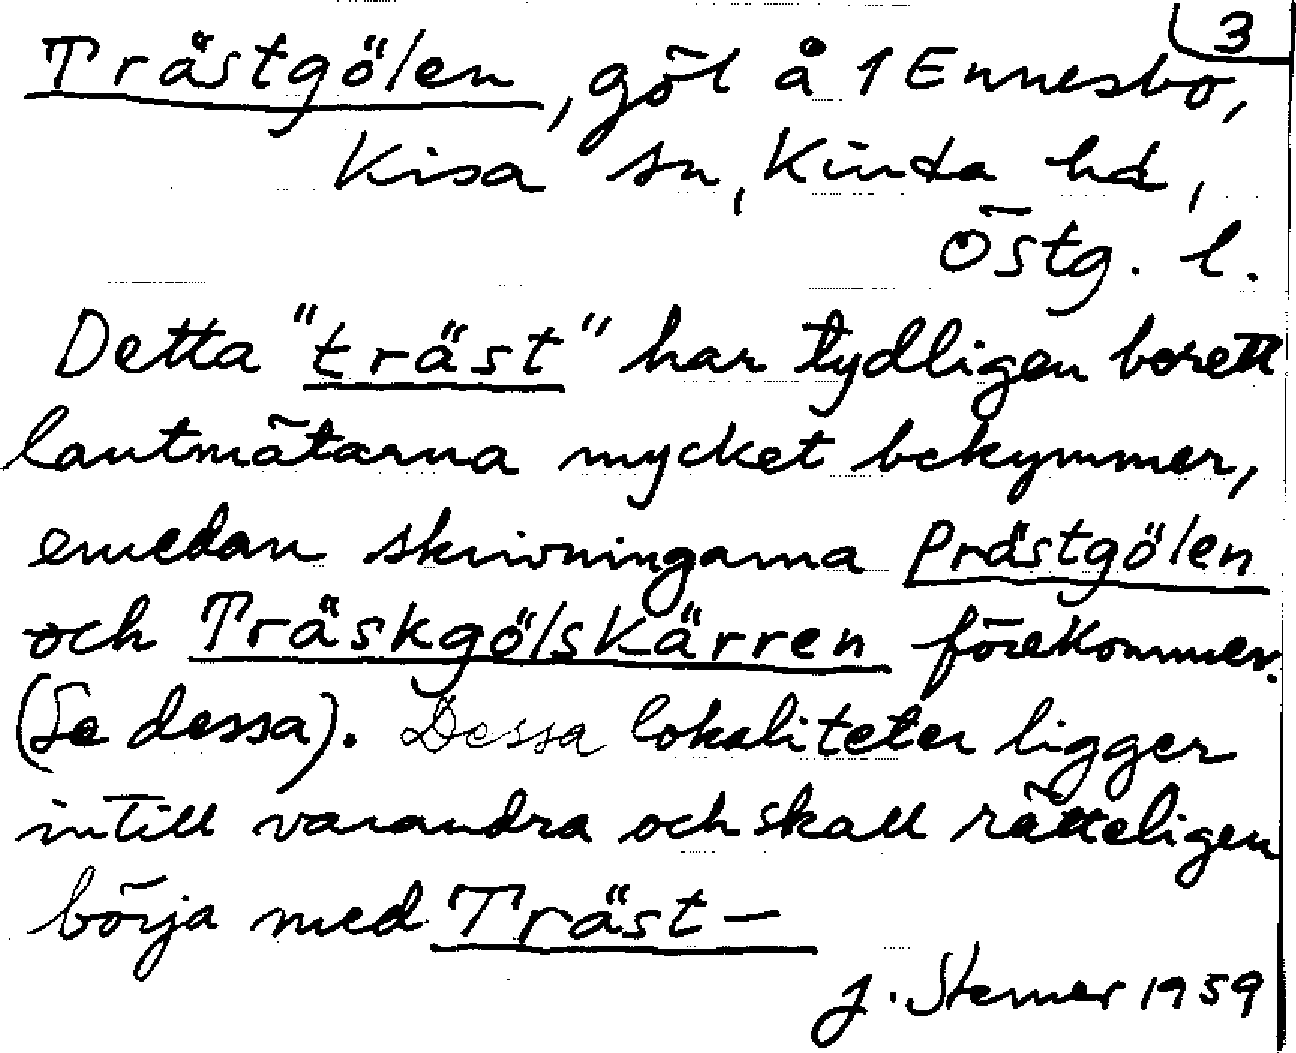 3
Trästgölen, göl å 1 Ennesbo,
Kisa sn, Kinda hd,
Östg. l.
Detta "träst" har tydligen berett
lantmätarna mycket bekymmer,
emedan skrivningarna Prästgölen
och Träskgölskärren förekommer.
(Se dessa). Dessa lokaliteter ligger
intill varandra och skall rätteligen
börja med Träst-
J. Sterner 1959